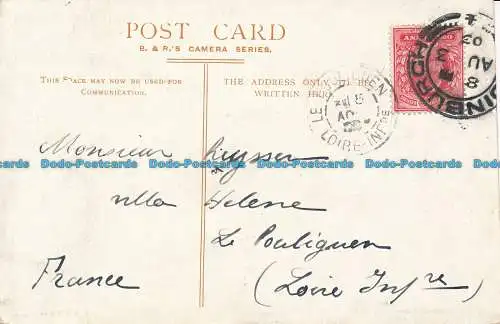 POST CARD
B. & R.'S CAMERA SERIES.
THIS SPACE MAY NOW BE USED FOR COMMUNICATION.
THE ADDRESS ONLY TO BE WRITTEN HERE
EDINBURGH
8
AU
03
LE POULIGUEN
AOUT
LOIRE-INFRE
Dodo-Postcards Dodo-Postcards Dodo-Postcards Dodo-Postcards Dodo-Postcards
Monsieur
villa Helene
Le Pouliguen
France
(Loire Infre)
Dodo-Postcards Dodo-Postcards Dodo-Postcards Dodo-Postcards Dodo-Postcards